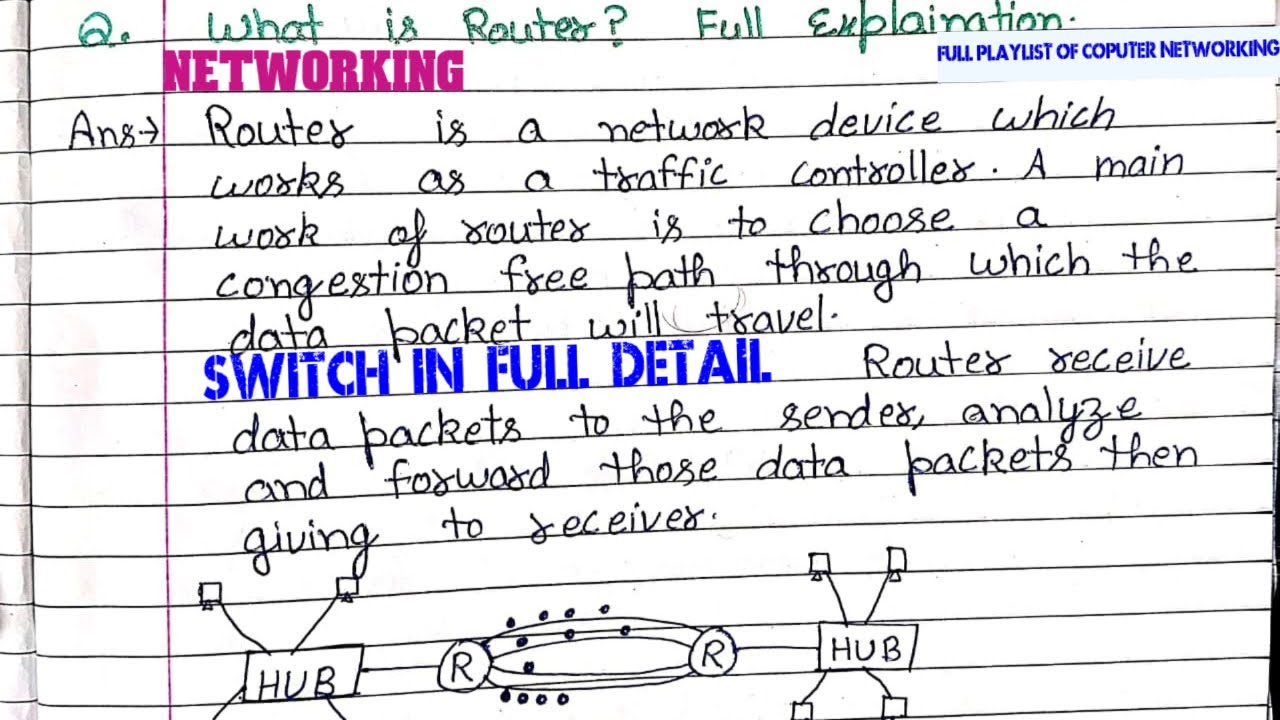 Q. What is Router? Full Explaination.
NETWORKING
FULL PLAYLIST OF COPUTER NETWORKING
Ans→ Router is a network device which
works as a traffic controller. A main
work of router is to choose a
congestion free path through which the
data packet will travel.
SWITCH IN FULL DETAIL
Router receive
data packets to the sender, analyze
and forward those data packets then
giving to receiver.
HUB R R HUB